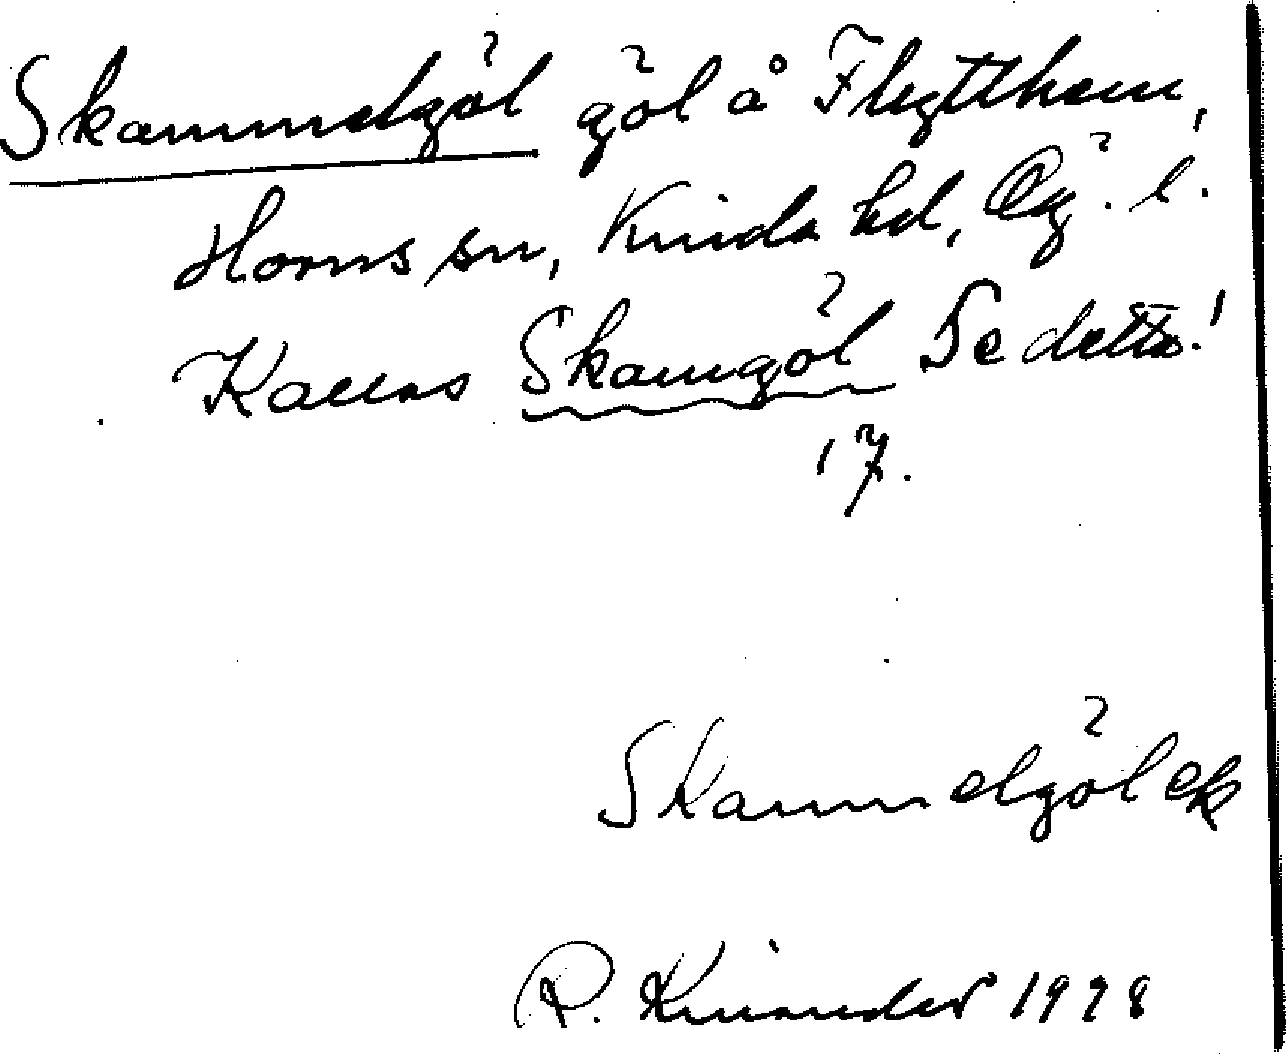 Skammelgöl göl å Flytthem,
Horns sn, Kinda hd, Ög. l.
Kallas Skamgöl Se detta!
17.
Skammelgöl ek
R. Kinander 1928